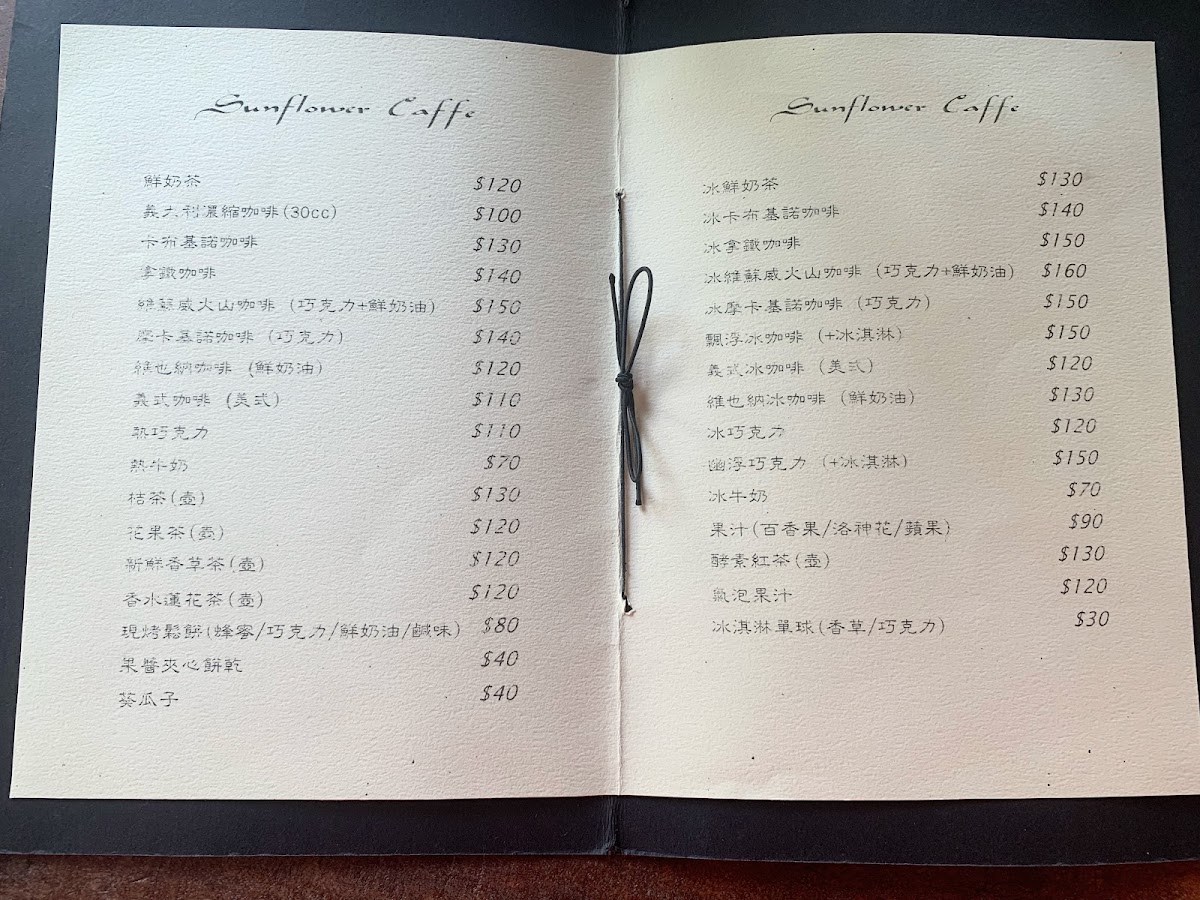 Sunflower Caffe
鮮奶茶 $120
義大利濃縮咖啡(30cc) $100
卡布基諾咖啡 $130
拿鐵咖啡 $140
維蘇威火山咖啡 (巧克力+鮮奶油) $150
摩卡基諾咖啡 (巧克力) $140
維也納咖啡 (鮮奶油) $120
義式咖啡 (美式) $110
熱巧克力 $110
熱牛奶 $70
桔茶(壺) $130
花果茶(壺) $120
新鮮香草茶(壺) $120
香水蓮花茶(壺) $120
現烤鬆餅(蜂蜜/巧克力/鮮奶油/鹹味) $80
果醬夾心餅乾 $40
葵瓜子 $40
Sunflower Caffe
冰鮮奶茶 $130
冰卡布基諾咖啡 $140
冰拿鐵咖啡 $150
冰維蘇威火山咖啡 (巧克力+鮮奶油) $160
冰摩卡基諾咖啡 (巧克力) $150
飄浮冰咖啡 (+冰淇淋) $150
義式冰咖啡 (美式) $120
維也納冰咖啡 (鮮奶油) $130
冰巧克力 $120
幽浮巧克力 (+冰淇淋) $150
冰牛奶 $70
果汁(百香果/洛神花/蘋果) $90
酵素紅茶(壺) $130
氣泡果汁 $120
冰淇淋單球(香草/巧克力) $30